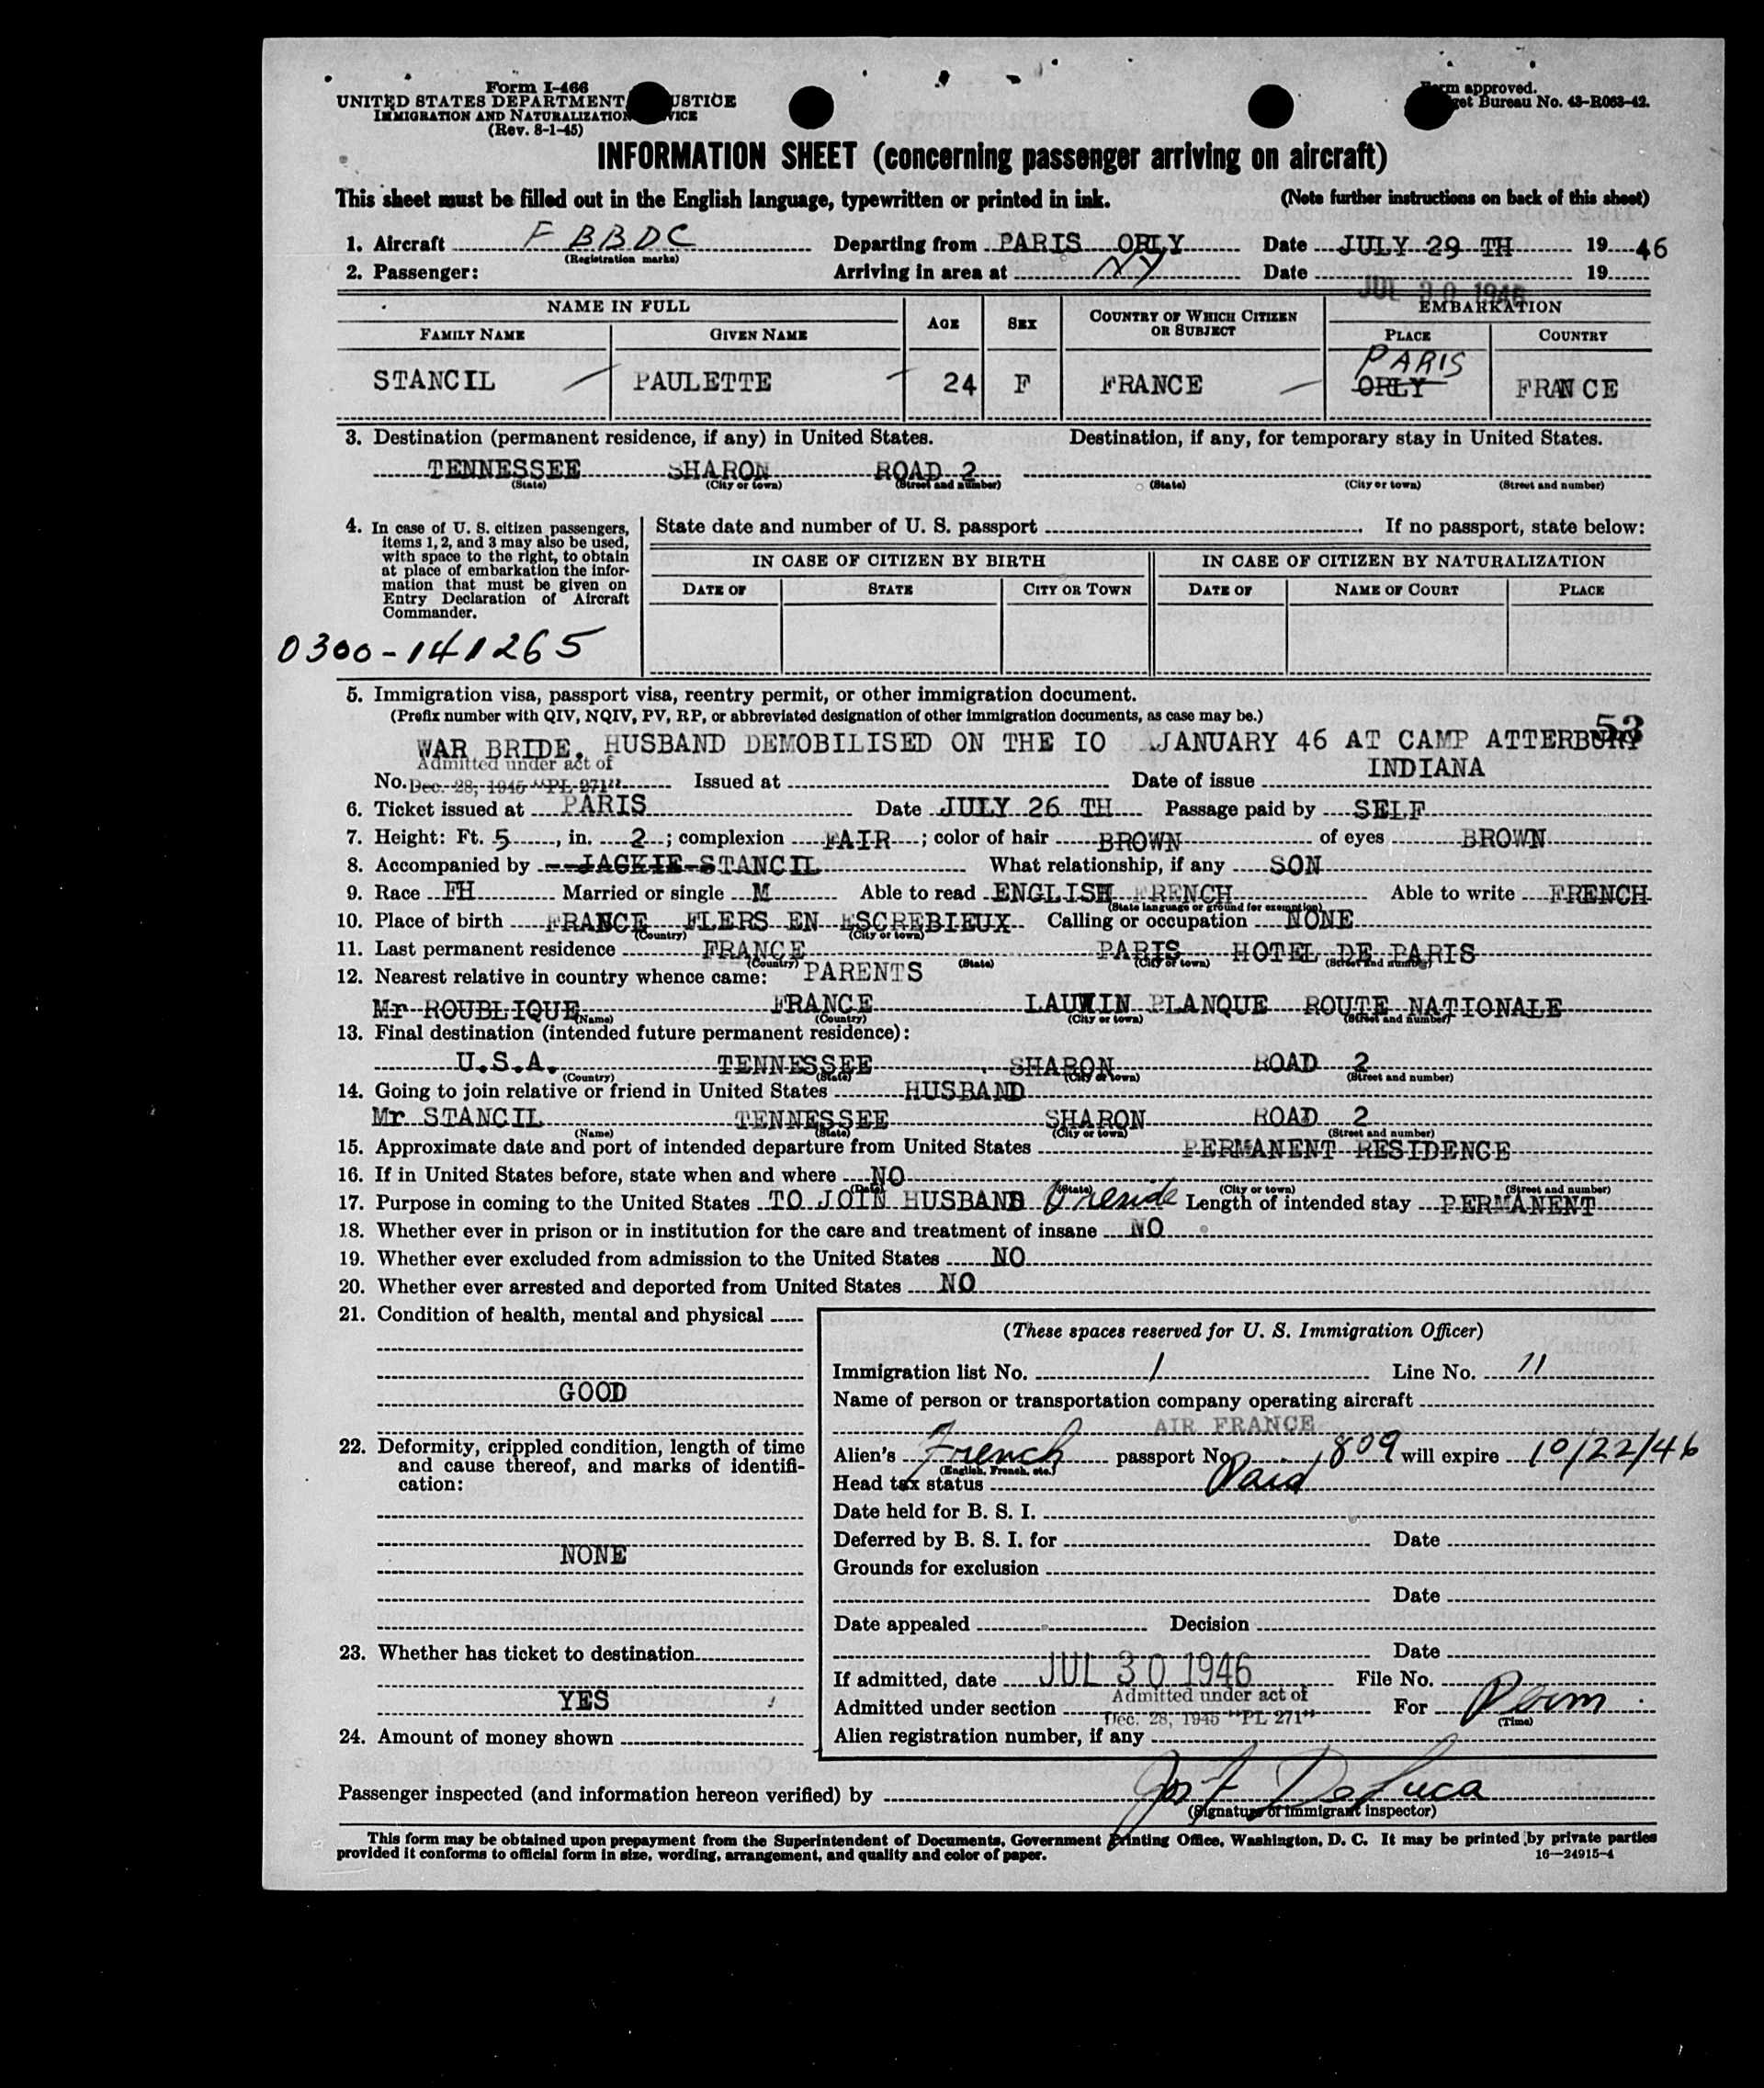 Form I-466
UNITED STATES DEPARTMENT JUSTICE
IMMIGRATION AND NATURALIZATION SERVICE
(Rev. 8-1-45)
Form approved.
Budget Bureau No. 43-R063-42.
INFORMATION SHEET (concerning passenger arriving on aircraft)
This sheet must be filled out in the English language, typewritten or printed in ink. (Note further instructions on back of this sheet)
1. Aircraft F BBDC Departing from PARIS ORLY Date JULY 29 TH 19 46
(Registration marks)
2. Passenger: Arriving in area at NY Date 19
JUL 30 1946
NAME IN FULL AGE SEX COUNTRY OF WHICH CITIZEN OR SUBJECT EMBARKATION
FAMILY NAME GIVEN NAME PLACE COUNTRY
PARIS
STANCIL PAULETTE 24 F FRANCE ORLY FRANCE
3. Destination (permanent residence, if any) in United States. Destination, if any, for temporary stay in United States.
TENNESSEE SHARON ROAD 2
(State) (City or town) (Street and number) (State) (City or town) (Street and number)
4. In case of U. S. citizen passengers,
items 1, 2, and 3 may also be used,
with space to the right, to obtain
at place of embarkation the infor-
mation that must be given on
Entry Declaration of Aircraft
Commander.
State date and number of U. S. passport If no passport, state below:
IN CASE OF CITIZEN BY BIRTH IN CASE OF CITIZEN BY NATURALIZATION
DATE OF STATE CITY OR TOWN DATE OF NAME OF COURT PLACE
0300-141265
5. Immigration visa, passport visa, reentry permit, or other immigration document.
(Prefix number with QIV, NQIV, PV, RP, or abbreviated designation of other immigration documents, as case may be.)
53
WAR BRIDE. HUSBAND DEMOBILISED ON THE IO JANUARY 46 AT CAMP ATTERBURY
INDIANA
Admitted under act of
No. Dec. 28, 1945 "PL 271" Issued at Date of issue
6. Ticket issued at PARIS Date JULY 26 TH Passage paid by SELF
7. Height: Ft. 5, in. 2; complexion FAIR; color of hair BROWN of eyes BROWN
8. Accompanied by --JACKIE-STANCIL What relationship, if any SON
9. Race FH Married or single M Able to read ENGLISH FRENCH Able to write FRENCH
(State language or ground for exemption)
10. Place of birth FRANCE FLERS EN ESCREBIEUX Calling or occupation NONE
(Country) (City or town)
11. Last permanent residence FRANCE PARIS HOTEL DE PARIS
(Country) (State) (City or town) (Street and number)
12. Nearest relative in country whence came: PARENTS
Mr ROUBLIQUE FRANCE LAUWIN PLANQUE ROUTE NATIONALE
(Name) (Country) (City or town) (Street and number)
13. Final destination (intended future permanent residence):
U.S.A. TENNESSEE SHARON ROAD 2
(Country) (State) (City or town) (Street and number)
14. Going to join relative or friend in United States HUSBAND
Mr STANCIL TENNESSEE SHARON ROAD 2
(Name) (State) (City or town) (Street and number)
15. Approximate date and port of intended departure from United States PERMANENT RESIDENCE
16. If in United States before, state when and where NO
(Date) (State) (City or town) (Street and number)
17. Purpose in coming to the United States TO JOIN HUSBAND & reside Length of intended stay PERMANENT
18. Whether ever in prison or in institution for the care and treatment of insane NO
19. Whether ever excluded from admission to the United States NO
20. Whether ever arrested and deported from United States NO
21. Condition of health, mental and physical
GOOD
22. Deformity, crippled condition, length of time
and cause thereof, and marks of identifi-
cation:
NONE
23. Whether has ticket to destination
YES
24. Amount of money shown
(These spaces reserved for U. S. Immigration Officer)
Immigration list No. 1 Line No. 11
Name of person or transportation company operating aircraft
AIR FRANCE
Alien's French passport No. 1809 will expire 10/22/46
(English, French, etc.)
Head tax status Paid
Date held for B. S. I.
Deferred by B. S. I. for Date
Grounds for exclusion
Date
Date appealed Decision
Date
If admitted, date JUL 30 1946 File No.
Admitted under section Admitted under act of For Perm
Dec. 28, 1945 "PL 271" (Time)
Alien registration number, if any
Passenger inspected (and information hereon verified) by Jos F DeLuca
(Signature of immigrant inspector)
This form may be obtained upon prepayment from the Superintendent of Documents, Government Printing Office, Washington, D. C. It may be printed by private parties
provided it conforms to official form in size, wording, arrangement, and quality and color of paper. 16—24915-4